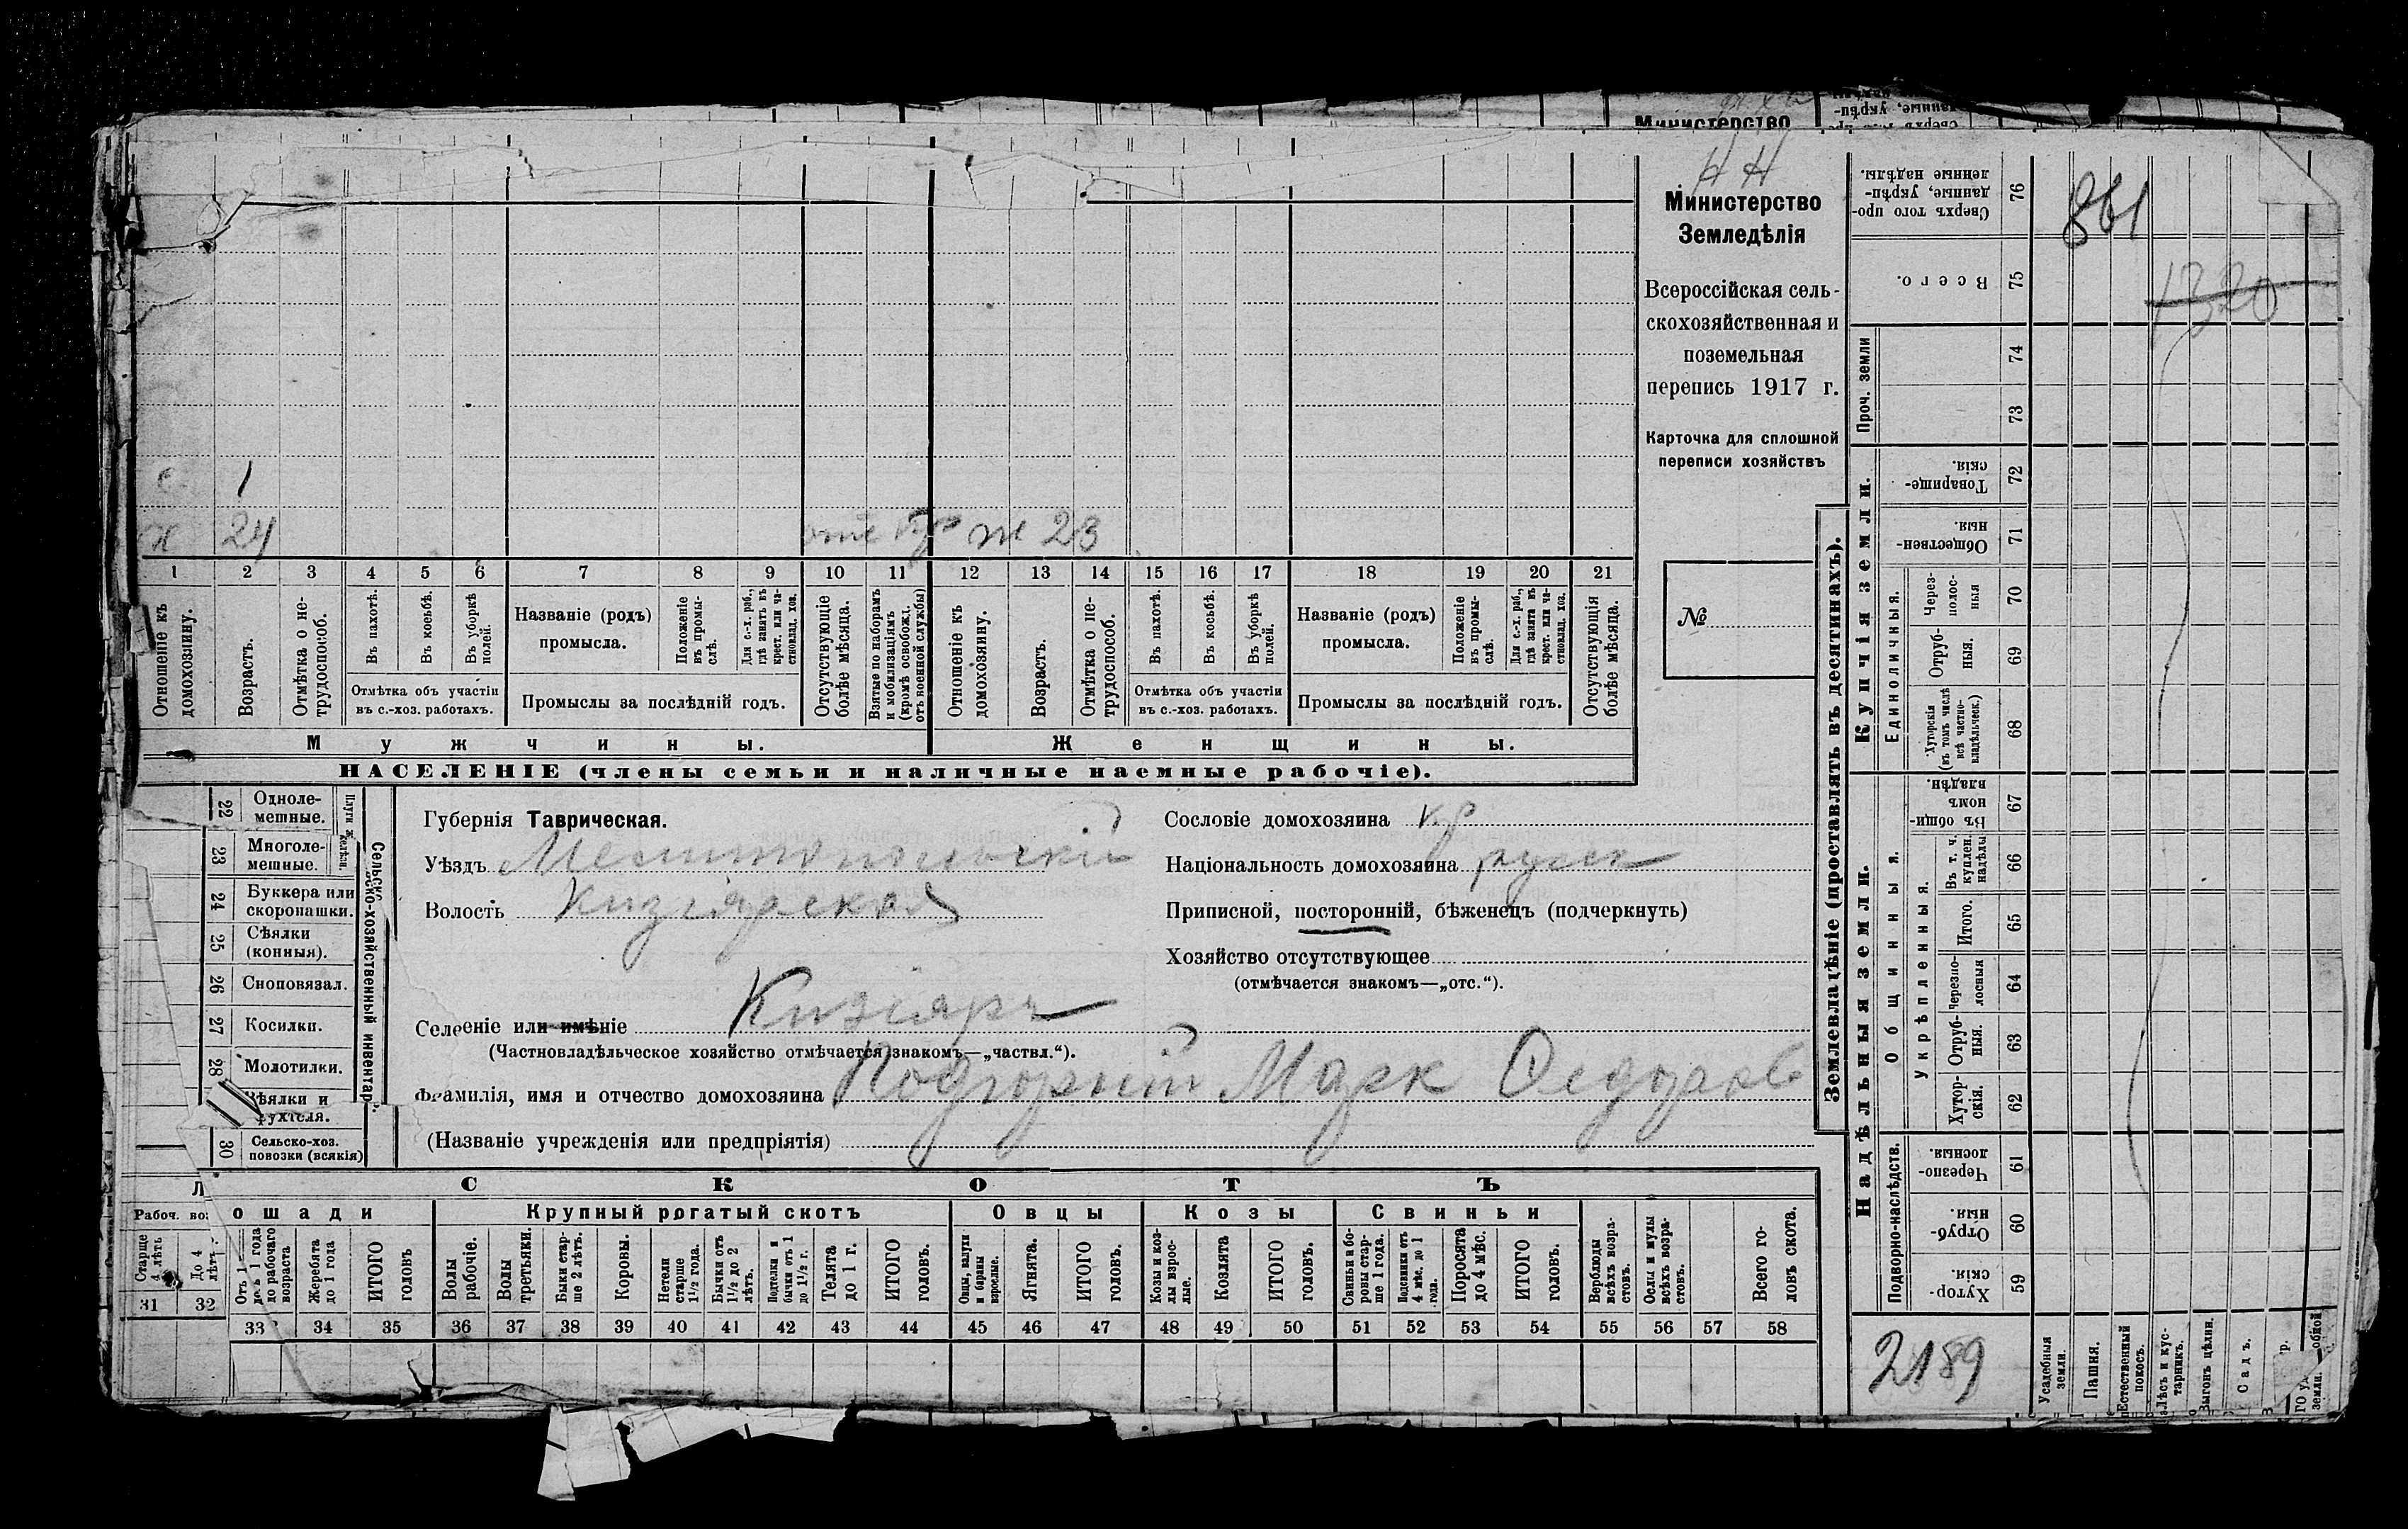 Министерство
НН
Министерство
Земледѣлія
Всероссійская сель-
скохозяйственная и
поземельная
перепись 1917 г.
Карточка для сплошной
переписи хозяйствъ
№
с 1
х 24 ж 23
1 2 3 4 5 6 7 8 9 10 11 12 13 14 15 16 17 18 19 20 21
Отношеніе къ домохозяину.
Возрастъ.
Отмѣтка о не-трудоспособ.
Въ пахотѣ.
Въ косьбѣ.
Въ уборкѣ полей.
Отмѣтка объ участіи
въ с.-хоз. работахъ.
Названіе (родъ)
промысла.
Положеніе въ промы-слѣ.
Для с.-х. раб., гдѣ занятъ въ крест. или ча-стновлад. хоз.
Промыслы за послѣдній годъ.
Отсутствующіе болѣе мѣсяца.
Взятые по наборамъ и мобилизаціямъ (кромѣ освобожд. отъ военной службы)
Отношеніе къ домохозяину.
Возрастъ.
Отмѣтка о не-трудоспособ.
Въ пахотѣ.
Въ косьбѣ.
Въ уборкѣ полей.
Отмѣтка объ участіи
въ с.-хоз. работахъ.
Названіе (родъ)
промысла.
Положеніе въ промы-слѣ.
Для с.-х. раб., гдѣ занята въ крест. или ча-стновлад. хоз.
Промыслы за послѣдній годъ.
Отсутствующія болѣе мѣсяца.
Мужчины. Женщины.
НАСЕЛЕНІЕ (члены семьи и наличные наемные рабочіе).
22 Одноле-
метные.
23 Многоле-
метные.
24 Буккера или
скоропашки.
25 Сѣялки
(конныя).
26 Сноповязал.
27 Косилки.
28 Молотилки.
Вѣялки и
30 Сельско-хоз.
повозки (всякія)
Сельско-хозяйственный инвентарь.
Губернія Таврическая.
Уѣздъ Мелитопольскій
Волость Кизіярская
Селеніе или имѣніе Кизіяръ
(Частновладѣльческое хозяйство отмѣчается знакомъ—„частвл.“).
Фамилія, имя и отчество домохозяина Подгорній Марк Федоров
(Названіе учрежденія или предпріятія)
Сословіе домохозяина кр
Національность домохозяина русск
Приписной, посторонній, бѣженецъ (подчеркнуть)
Хозяйство отсутствующее
(отмѣчается знакомъ—„отс.“).
СКОТЪ
Лошади
Крупный рогатый скотъ
Овцы
Козы
Свиньи
Рабоч. воз
Старше 4 лѣтъ
До 4 лѣтъ
Отъ 1 года до рабочаго возраста
Жеребята до 1 года
ИТОГО головъ
Волы рабочіе.
Волы третьяки.
Быки стар-ше 2 лѣтъ.
Коровы.
Нетели старше 1½ года.
Бычки отъ 1½ до 2 лѣтъ.
Подтелки и бычки отъ 1 до 1½ г.
Телята до 1 г.
ИТОГО головъ.
Овцы, валухи и бараны взрослые.
Ягнята.
ИТОГО головъ.
Козы и коз-лы взрос-лые.
Козлята
ИТОГО головъ.
Свиньи и бо-ровы стар-ше 1 года.
Подсвинки отъ 4 мѣс. до 1 года.
Поросята до 4 мѣс.
ИТОГО головъ.
Верблюды всѣхъ возра-стовъ.
Ослы и мулы всѣхъ возра-стовъ.
Всего го-ловъ скота.
31 32 33 34 35 36 37 38 39 40 41 42 43 44 45 46 47 48 49 50 51 52 53 54 55 56 57 58
Землевладѣніе (проставлять въ десятинахъ).
Купчія земли.
Надѣльныя земли.
Сверхъ того про-данные, укрѣп-ленные надѣлы. 76
Всего. 75
Проч. земли 74
73
Товарище-скія. 72
Обществен-ныя. 71
Единоличныя.
Через-полос-ныя 70
Отруб-ныя. 69
Хуторскія (въ томъ числѣ всѣ частно-владѣльческ.) 68
Общинныя.
Въ общи-номъ владѣн. 67
Укрѣпленныя.
Въ т. ч. куплен. надѣлы 66
Итого. 65
Черезпо-лосныя 64
Отруб-ныя. 63
Хутор-скія. 62
Подворно-наслѣдств.
Черезпо-лосныя. 61
Отруб-ныя. 60
Хутор-скія. 59
861
1320
2189
Усадебныя земли.
Пашня.
Естественный покосъ.
Лѣсъ и кус-тарникъ.
Выгонъ цѣлин.
Садъ.